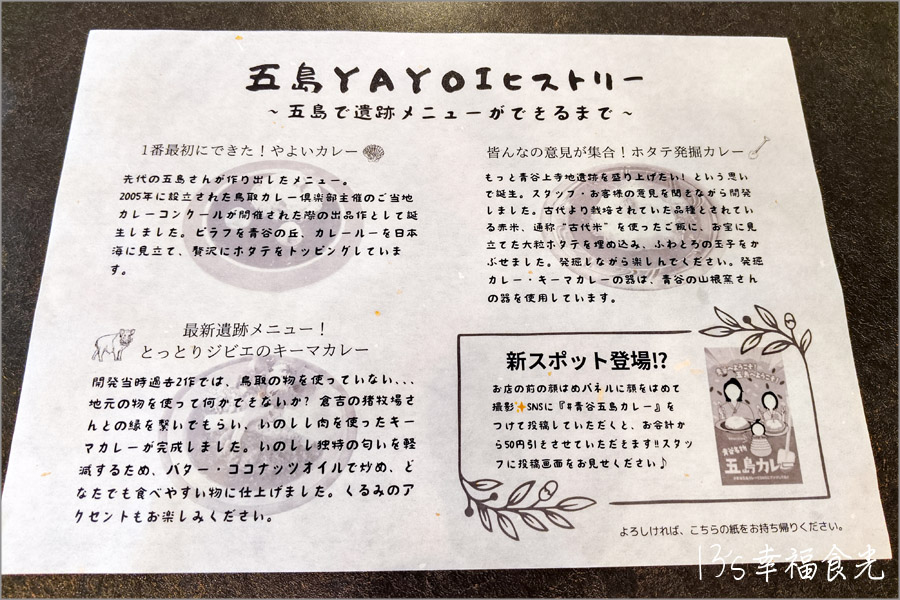 五島YAYOIヒストリー
~五島で遺跡メニューができるまで~
1番最初にできた!やよいカレー
先代の五島さんが作り出したメニュー。
2005年に設立された鳥取カレー倶楽部主催のご当地
カレーコンクールが開催された際の出品作として誕
生しました。ピラフを青谷の丘、カレールーを日本
海に見立て、贅沢にホタテをトッピングしていま
す。
皆んなの意見が集合!ホタテ発掘カレー
もっと青谷上寺地遺跡を盛り上げたい!という思い
で誕生。スタッフ・お客様の意見を聞きながら開発
しました。古代より栽培されていた品種とされてい
る赤米、通称"古代米"を使ったご飯に、お宝に見
立てた大粒ホタテを埋め込み、ふわとろの玉子をか
ぶせました。発掘しながら楽しんでください。発掘
カレー・キーマカレーの器は、青谷の山根窯さん
の器を使用しています。
最新遺跡メニュー!
とっとりジビエのキーマカレー
開発当時過去2作では、鳥取の物を使っていない...
地元の物を使って何かできないか?倉吉の猪牧場さ
んとの縁を繋いでもらい、いのしし肉を使ったキー
マカレーが完成しました。いのしし独特の匂いを軽
減するため、バター・ココナッツオイルで炒め、ど
なたでも食べやすい物に仕上げました。くるみのア
クセントもお楽しみください。
新スポット登場!?
お店の前の顔はめパネルに顔をはめて
撮影✨SNSに『#青谷五島カレー』を
つけて投稿していただくと、お会計か
ら50円引きをさせていただきます!!スタッ
フに投稿画面をお見せください♪
五島カレー
よろしければ、こちらの紙をお持ち帰りください。
13's幸福食光